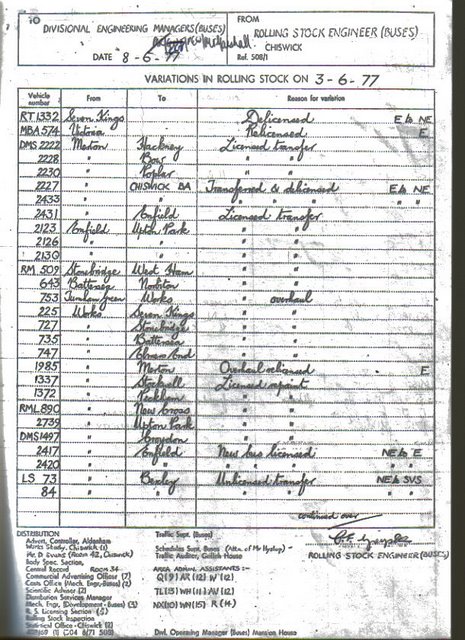 TO DIVISIONAL ENGINEERING MANAGERS (BUSES)
FROM ROLLING STOCK ENGINEER (BUSES)
CHISWICK
DATE 8-6-77 Ref. 508/1
VARIATIONS IN ROLLING STOCK ON 3-6-77
Vehicle number From To Reason for variation
RT1332 Seven Kings Delicensed E to NE
MBA574 Victoria Relicensed E
DMS2222 Merton Hackney Licensed transfer
2228 " Bow " "
2230 " Poplar " "
2227 " CHISWICK BA Transferred & delicensed E to NE
2433 " " " " " "
2431 " Enfield Licensed transfer
2123 Enfield Upton Park " "
2126 " " " "
2130 " " " "
RM 509 Stonebridge West Ham " "
643 Battersea Norbiton " "
753 Turnham Green Works " overhaul
225 Works Seven Kings " "
727 " Stonebridge " "
735 " Battersea " "
747 " Elmers End " "
1985 " Merton Overhaul relicensed E
1337 " Stockwell Licensed repaint
1372 " Peckham " "
RML890 " New Cross " "
2739 " Upton Park " "
DMS1497 " Croydon " "
2417 " Enfield New bus licensed NE to E
2420 " " " " " "
LS 73 " Bexley Unlicensed transfer NE to SVS
84 " " " " "
continued over
ROLLING STOCK ENGINEER (BUSES)
DISTRIBUTION
Advert. Controller, Aldenham
Works Study, Chiswick (1)
Mr. D Evans (Room 42, Chiswick)
Body Spec. Section,
Central Record ROOM 34
Commercial Advertising Officer (7)
Costs Office (Mech. Engr.-Buses) (2)
Scientific Advisor (2)
Distribution Services Manager
Mech. Engr. (Development-Buses) (3)
R. S. Licensing Section (5)
Rolling Stock Inspection
Statistical Office - Chiswick (2)
Traffic Supt. (Buses)
Schedules Supt. Buses (Attn. of Mr Hyslop)
Traffic Auditor, Griffith House
AREA ADMIN. ASSISTANTS:-
Q(9) AR(12) W(12)
TL(13) WH(11) AV(12)
ND(10) WN(15) R(14)
Divl. Operating Manager (Buses) Mansion House